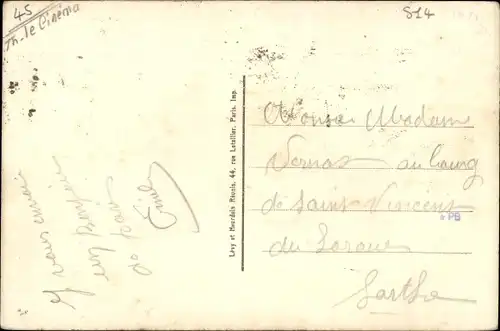 45
Th. le Cinéma
814
Je vous envoie
un bonjour
de Paris
Emile
Lévy et Neurdein Réunis, 44, rue Letellier, Paris. Imp.
Madame
Vernas au bourg
de Saint Vincent
du Lorouer
PB
Sarthe